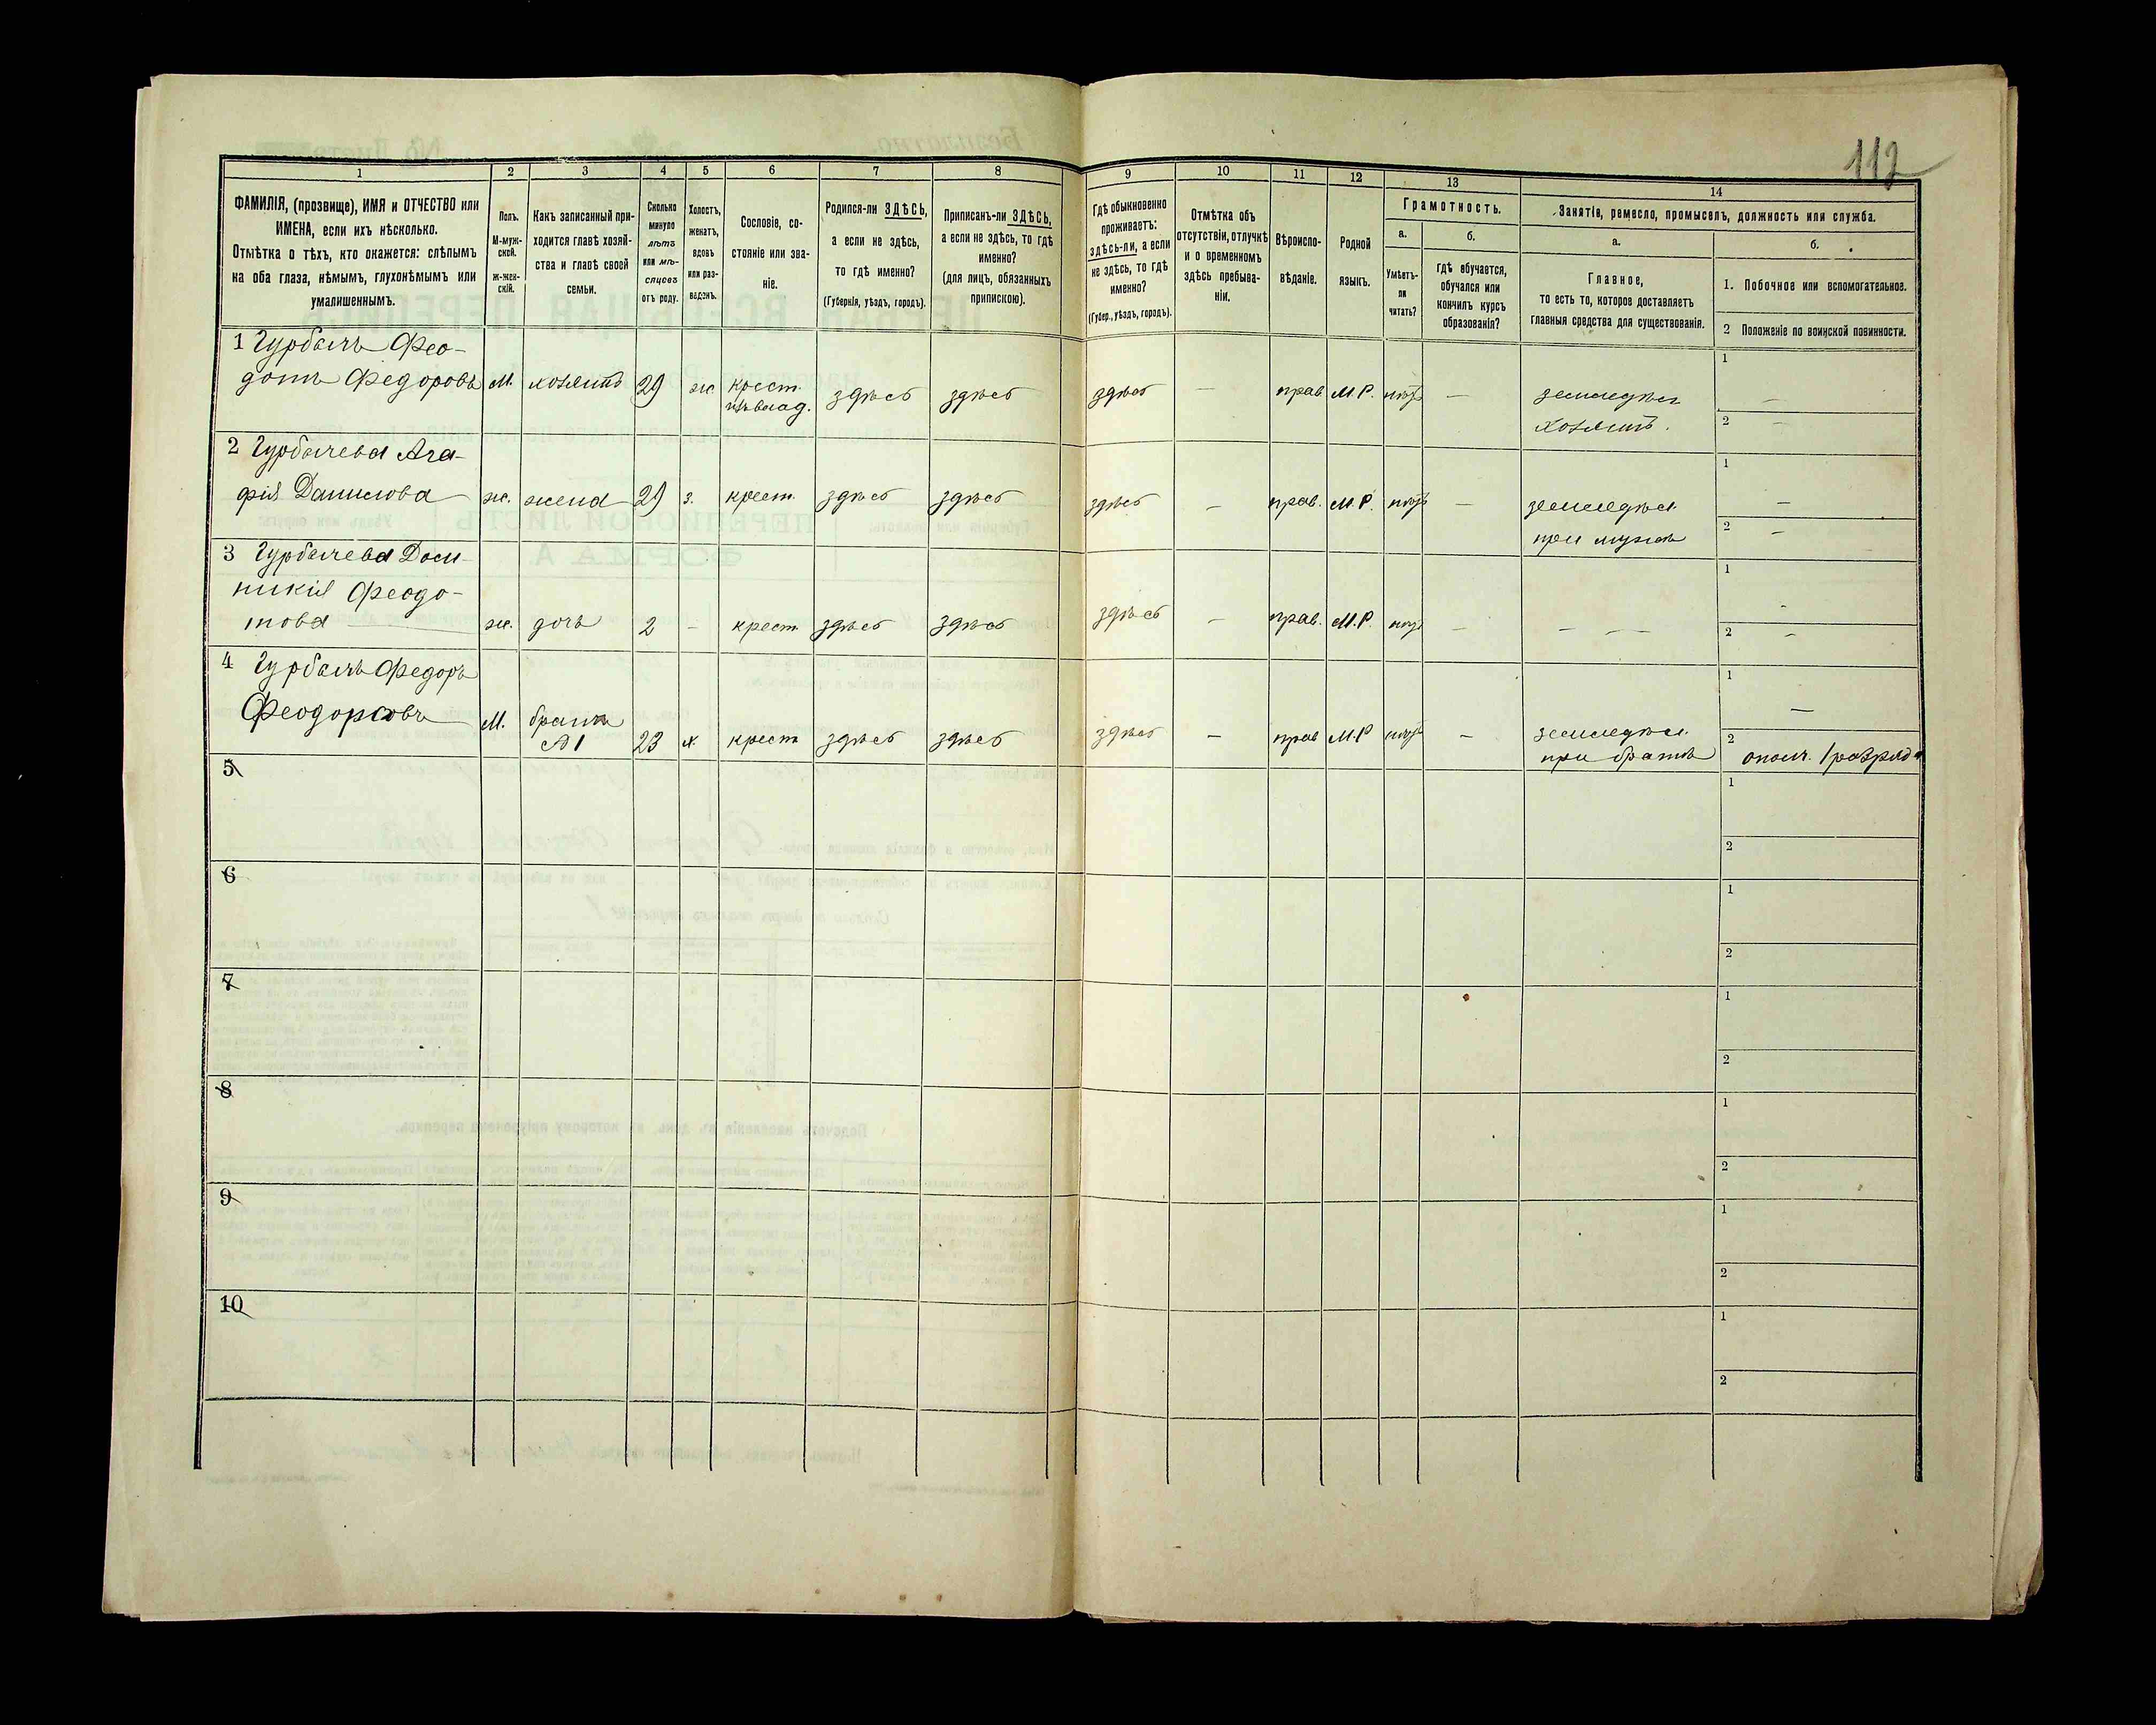 112
1
2
3
4
5
6
7
8
9
10
11
12
13
14
ФАМИЛІЯ, (прозвище), ИМЯ и ОТЧЕСТВО или
ИМЕНА, если ихъ нѣсколько.
Отмѣтка о тѣхъ, кто окажется: слѣпымъ
на оба глаза, нѣмымъ, глухонѣмымъ или
умалишеннымъ.
Полъ.
М-муж-
ской.
ж-жен-
скій.
Какъ записанный при-
ходится главѣ хозяй-
ства и главѣ своей
семьи.
Сколько
минуло
лѣтъ
или мѣ-
сяцевъ
отъ роду.
Холостъ,
женатъ,
вдовъ
или раз-
веденъ.
Сословіе, со-
стояніе или зва-
ніе.
Родился-ли ЗДѢСЬ,
а если не здѣсь,
то гдѣ именно?
(Губернія, уѣздъ, городъ).
Приписанъ-ли ЗДѢСЬ,
а если не здѣсь, то гдѣ
именно?
(для лицъ, обязанныхъ
припискою).
Гдѣ обыкновенно
проживаетъ:
здѣсь-ли, а если
не здѣсь, то гдѣ
именно?
(Губер., уѣздъ, городъ).
Отмѣтка объ
отсутствіи, отлучкѣ
и о временномъ
здѣсь пребыва-
ніи.
Вѣроиспо-
вѣданіе.
Родной
языкъ.
Грамотность.
а.
Умѣетъ-
ли
читать?
б.
гдѣ обучается,
обучался или
кончилъ курсъ
образованія?
Занятіе, ремесло, промыселъ, должность или служба.
а.
Главное,
то есть то, которое доставляетъ
главныя средства для существованія.
б.
1. Побочное или вспомогательное.
2 Положеніе по воинской повинности.
1 Гурбычъ Фео-
дотъ Федоровъ м. хозяинъ 29 ж крест. здѣсь здѣсь здѣсь — прав М.Р. — земледѣл
хозяинъ.
1 —
2 —
2 Гурбычева Ага-
фія Данилова ж. жена 29 з. крест. здѣсь здѣсь здѣсь — прав. М.Р. — земледѣл
при мужѣ
1 —
2 —
3 Гурбычева Дом-
никія Феодо-
това ж. дочь 2 — крест. здѣсь здѣсь здѣсь — прав. М.Р. — —
1 -
2 -
4 Гурбычъ Федоръ
Феодоровъ м. братъ 23 х. крест здѣсь здѣсь здѣсь — прав М.Р — земледѣл.
при братѣ
1 —
2 ополч. 1 разряд
5
1
2
6
1
2
7
1
2
8
1
2
9
1
2
10
1
2